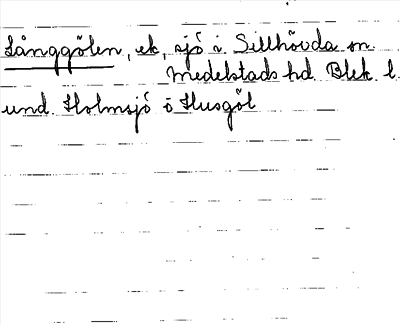 Långgölen, ek, sjö i Sillhövda sn
Medelstads hd Blek. l.
und. Holmsjö o Husgöl